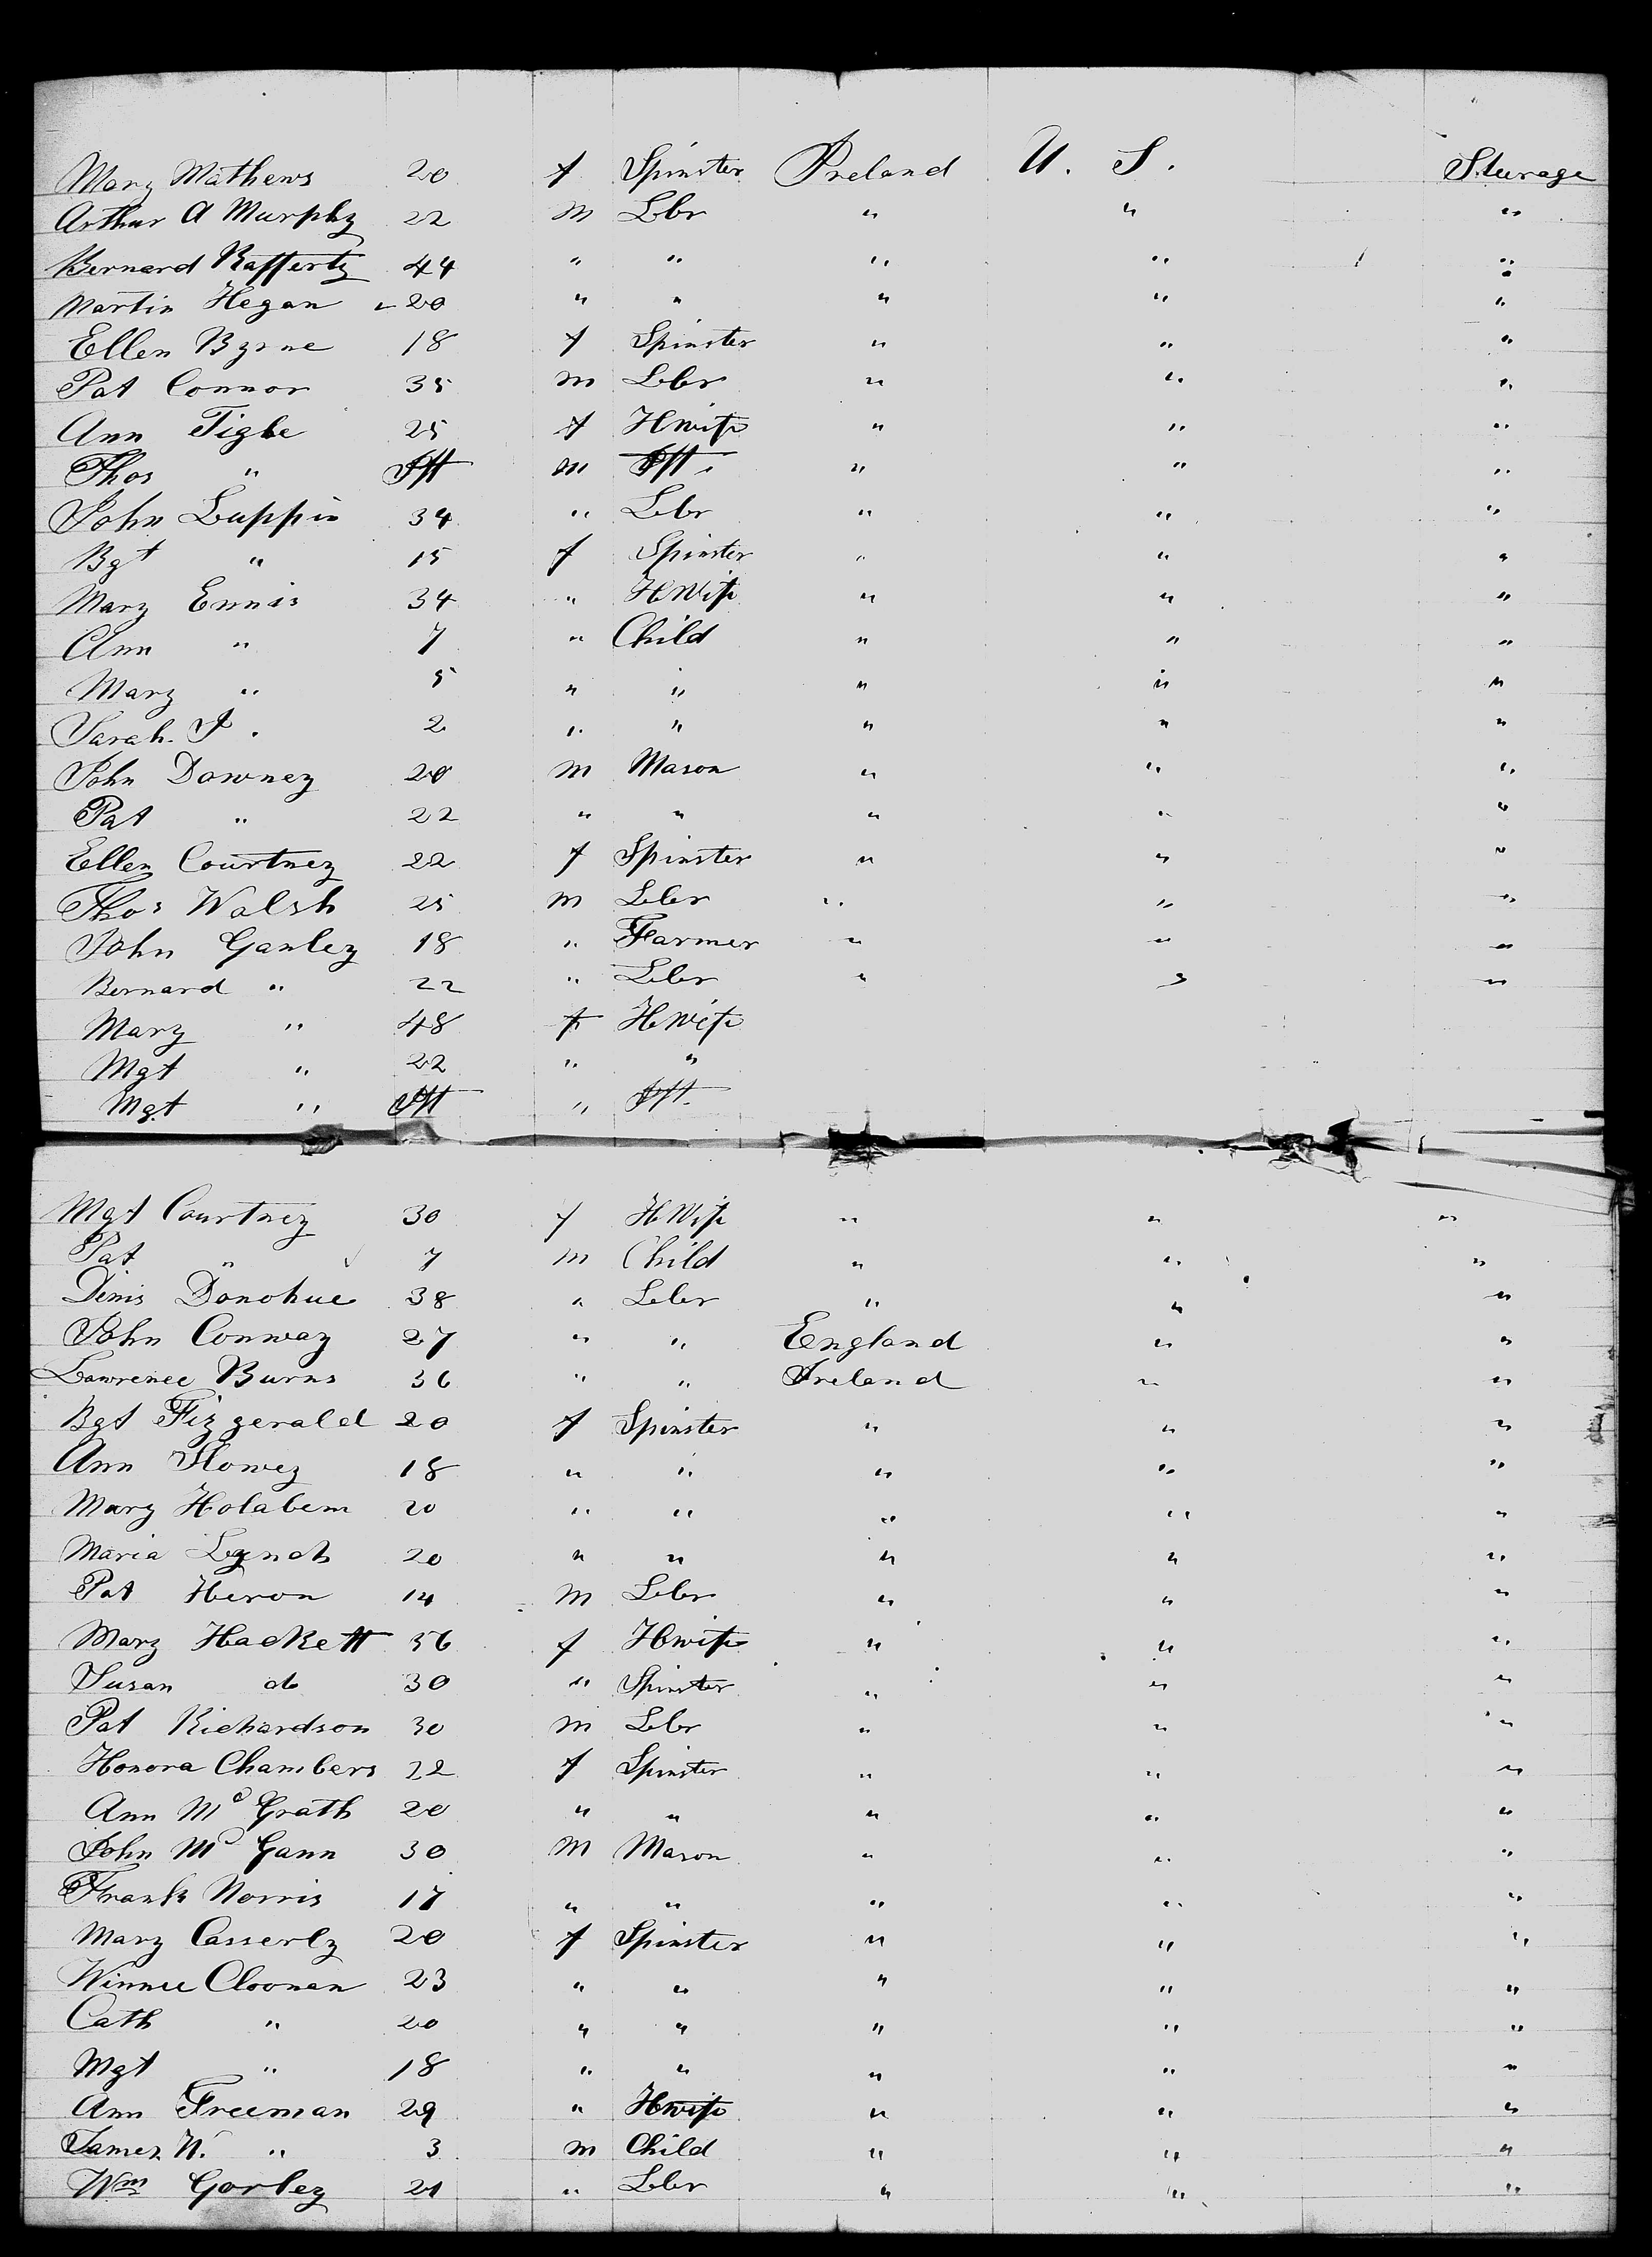 Mary Mathews 20 f Spinster Ireland U. S. Steerage
Arthur A Murphy 22 m Lbr " " "
Bernard Rafferty 44 " " " " "
Martin Hegan 20 " " " " "
Ellen Byrne 18 f Spinster " " "
Pat Connor 35 m Lbr " " "
Ann Tighe 25 f Hwife " " "
Thos " Ift m Ift " " "
John Luppin 34 " Lbr " " "
Bgt " 15 f Spinster " " "
Mary Ennis 34 " HWife " " "
Ann " 7 " Child " " "
Mary " 5 " " " " "
Sarah J. 2 " " " " "
John Downey 20 m Mason " " "
Pat " 22 " " " " "
Ellen Courtney 22 f Spinster " " "
Thos Walsh 25 m Lbr " " "
John Ganley 18 " Farmer " " "
Bernard " 22 " Lbr " " "
Mary " 48 f HWife
Mgt " 22 " "
Mgt " Ift " Ift
Mgt Courtney 30 f HWife " " "
Pat " 7 m Child " " "
Denis Donohue 38 " Lbr " " "
John Conway 27 " " England " "
Lawrence Burns 36 " " Ireland " "
Bgt Fizgerald 20 f Spinster " " "
Ann 18 " " " " "
Mary Holabem 20 " " " " "
Maria Lynch 20 " " " " "
Pat Heron 14 m Lbr " " "
Mary Hackett 56 f Hwife " " "
Susan do 30 " Spinster " " "
Pat Richardson 30 m Lbr " " "
Honora Chambers 22 f Spinster " " "
Ann McGrath 20 " " " " "
John McGann 30 m Mason " " "
Frank Norris 17 " " " " "
Mary Casserly 20 f Spinster " " "
Winnie Cloonan 23 " " " " "
Cath " 20 " " " " "
Mgt " 18 " " " " "
Ann Freeman 29 " Hwife " " "
James W. " 3 m Child " " "
Wm Gorley 21 " Lbr " " "